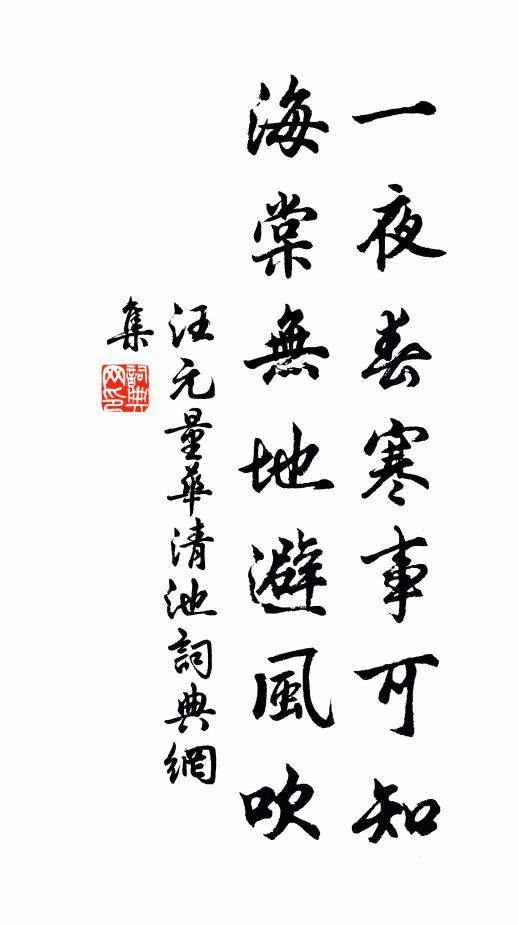 一夜春寒事可知
海棠無地避風吹
汪元量華清池詞典網
集
詞典
网印